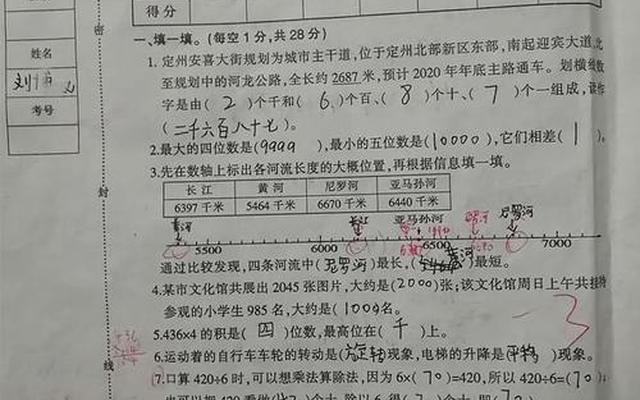 得分
密
姓名
考号
封
线
一、填一填。(每空1分,共28分)
1. 定州安喜大街规划为城市主干道,位于定州北部新区东部,南起迎宾大道,北
至规划中的河龙公路,全长约2687米,预计2020年年底主路通车。划横线数
字是由( 2 )个千和( 6 )个百、( 8 )个十、( 7 )个一组成,读作
(二千六百八十七)。
2.最大的四位数是(9999 ),最小的五位数是(10000),它们相差( 1 )。
3.先在数轴上标出各河流长度的大概位置,再根据信息填一填。
长江 黄河 尼罗河 亚马孙河
6397千米 5464千米 6670千米 6440千米
黄河 长江 亚马孙河 尼罗河
5500 6000 6500 7000
通过比较发现,四条河流中(尼罗河)最长,( 黄河 )最短。
4.某市文化馆共展出2045张图片,大约是(2000)张;该文化馆周日上午共接待
参观的小学生985名,大约是(1000名。
-3
5.436x4的积是( 四 )位数,最高位在( 千 )上。
6.运动着的自行车车轮的转动是(旋转)现象,电梯的升降是(平移 )现象。
7.口算420÷6时,可以想乘法算除法,因为6×( 70 )=420,所以420÷6=(70);